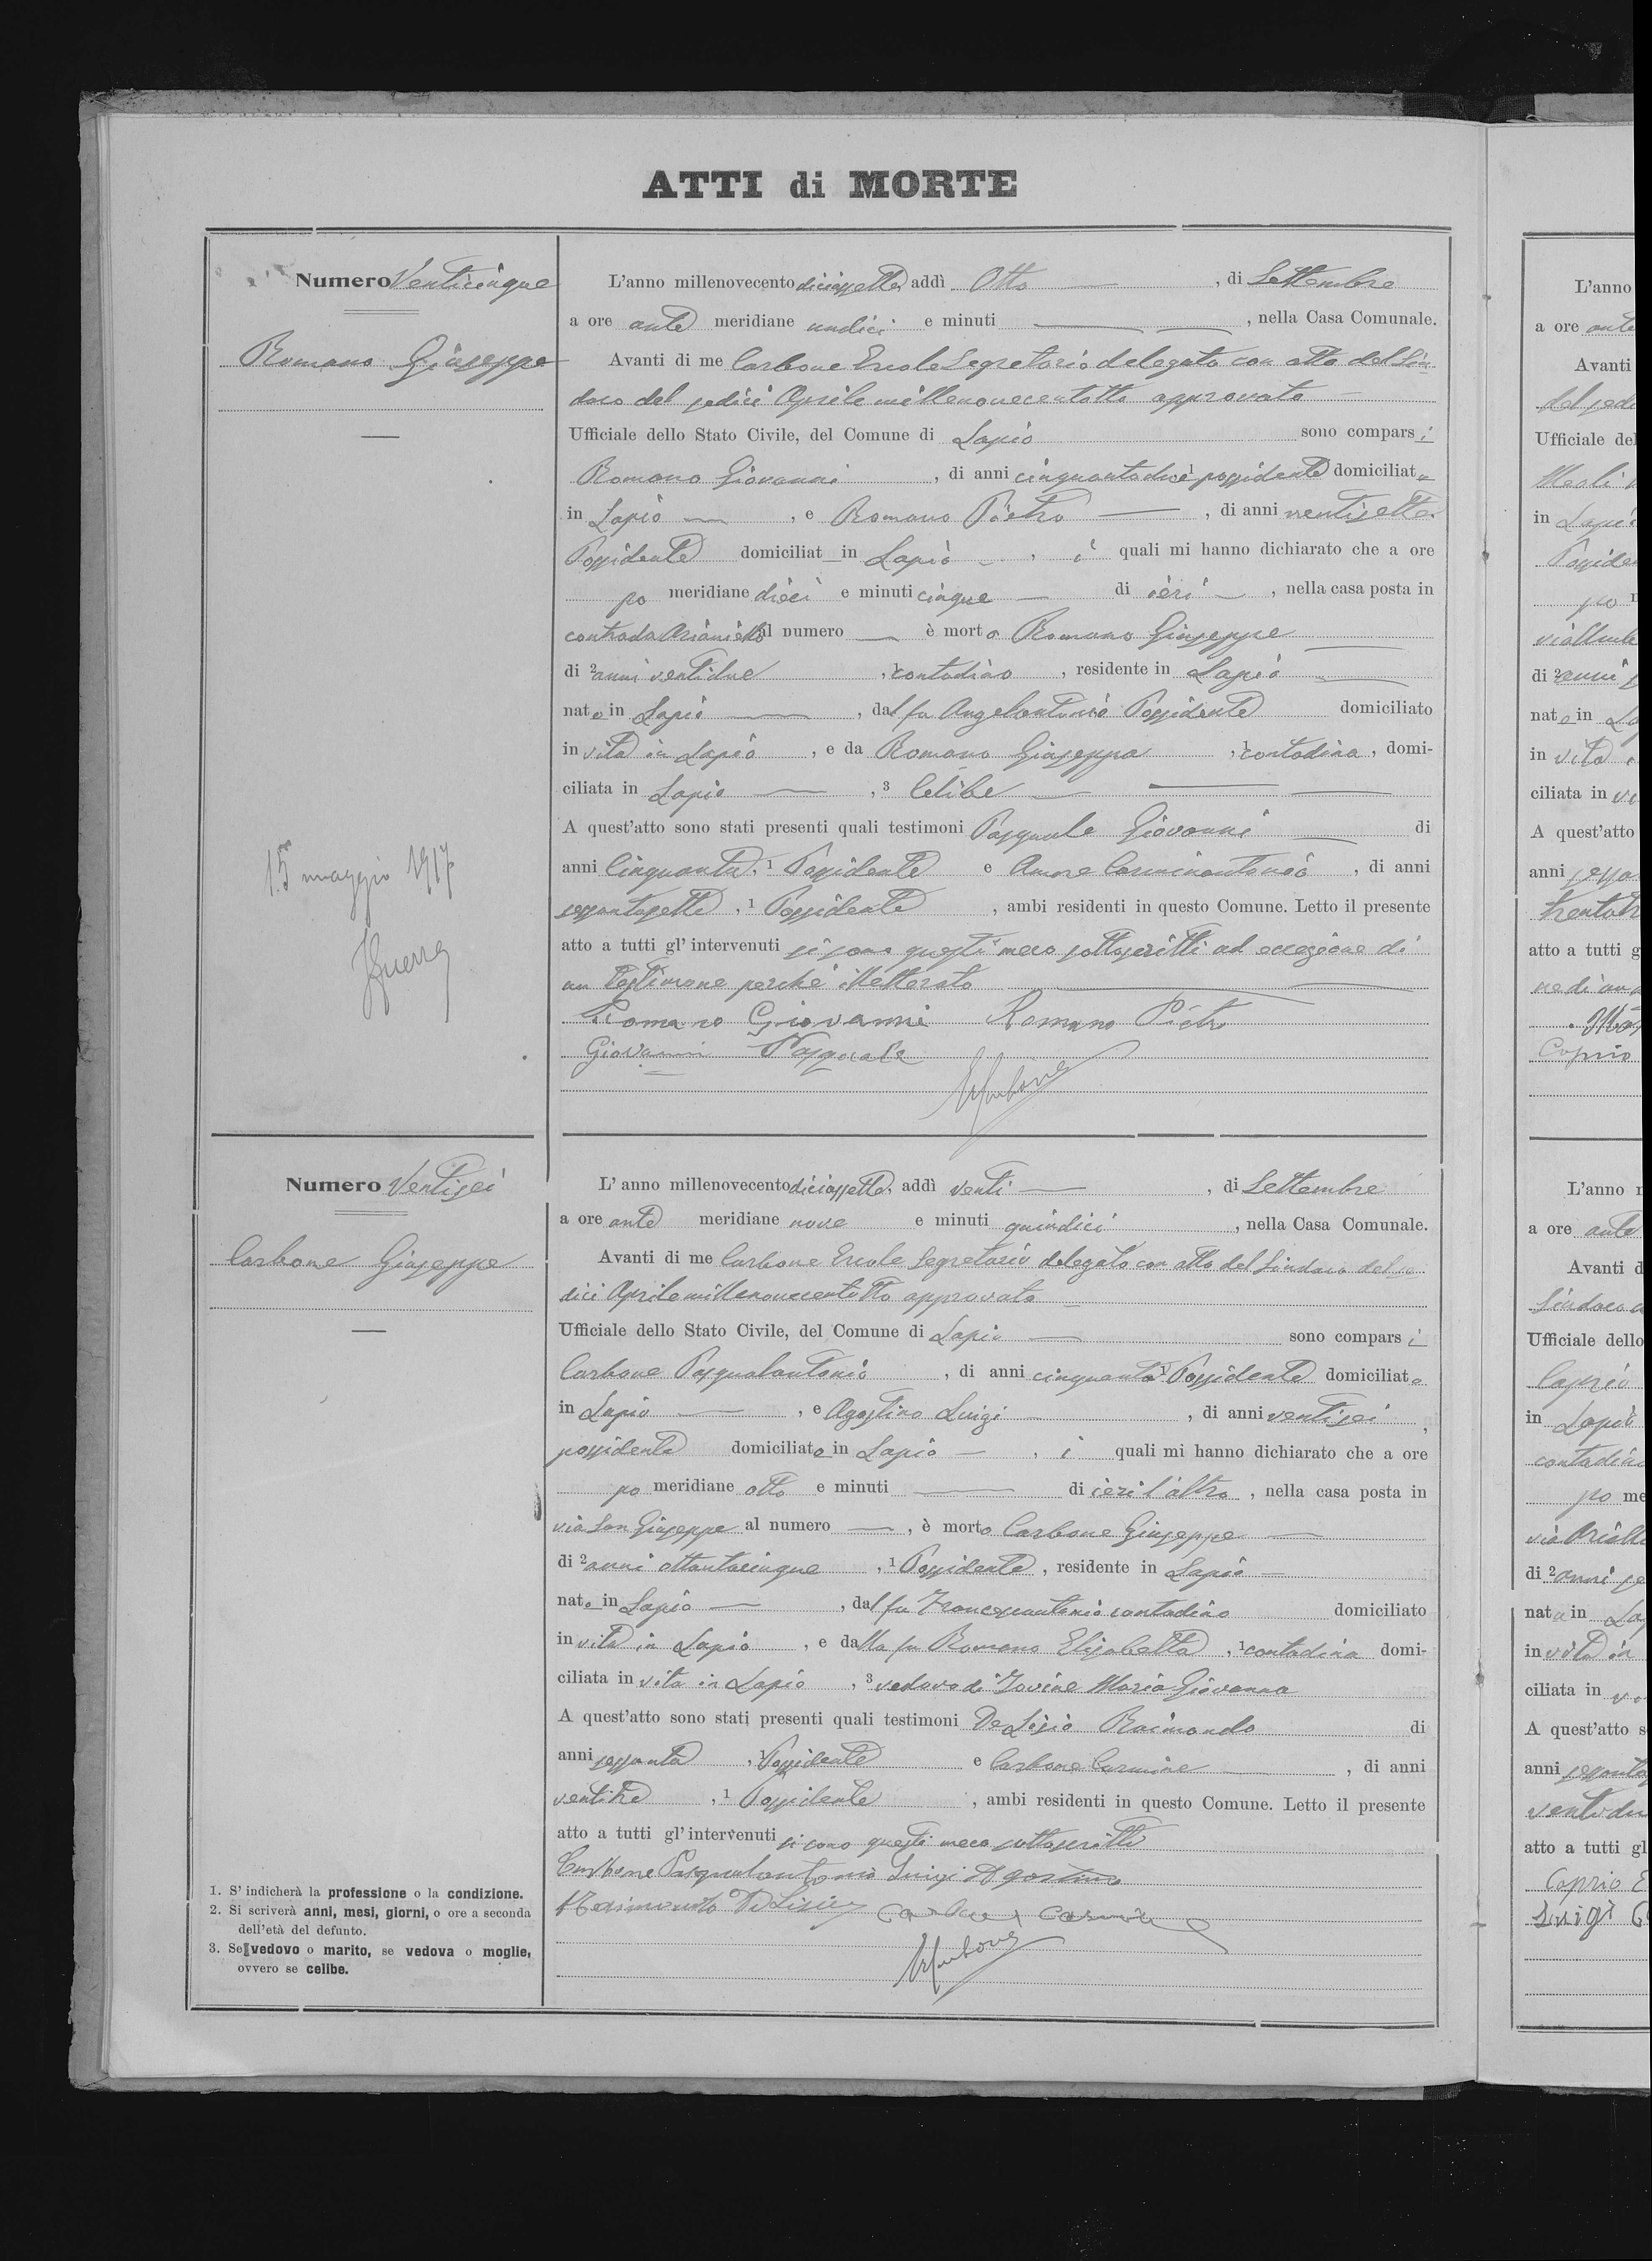 ATTI di MORTE
Numero Venticinque
Romano Giuseppe
15 maggio 1917
L'anno millenovecento diciassette addì Otto, di Settembre
a ore ante meridiane undici e minuti, nella Casa Comunale.
Avanti di me Carbone Ercole Segretario delegato con atto del Sin-
daco del sedici Aprile millenovecentotto approvato
Ufficiale dello Stato Civile, del Comune di Lapio sono comparsi
Romano Giovanni, di anni cinquantadue 1 possidente domiciliato
in Lapio, e Romano Pietro, di anni ventisette
Possidente domiciliat in Lapio, i quali mi hanno dichiarato che a ore
po meridiane dieci e minuti cinque di ieri, nella casa posta in
contrada Arianiello al numero è morto Romano Giuseppe
di 2 anni ventidue, 1 contadino, residente in Lapio
nato in Lapio, dal fu Angelantonio Possidente domiciliato
in vita in Lapio, e da Romano Giuseppa, 1 contadina, domi-
ciliata in Lapio, 3 Celibe
A quest'atto sono stati presenti quali testimoni Pasquale Giovanni di
anni Cinquanta, 1 Possidente e Amore Carminantonio, di anni
sessantasette, 1 Possidente, ambi residenti in questo Comune. Letto il presente
atto a tutti gl'intervenuti si sono questi meco sottoscritti ad eccezione di
un testimone perché illetterato
Romano Giovanni Romano Pietro
Giovanni Pasquale
ECarbone
Numero Ventisei
Carbone Giuseppe
L'anno millenovecento diciassette, addì venti, di Settembre
a ore ante meridiane nove e minuti quindici, nella Casa Comunale.
Avanti di me Carbone Ercole Segretario delegato con atto del Sindaco del se
dici Aprile millenovecentotto approvato
Ufficiale dello Stato Civile, del Comune di Lapio sono comparsi
Carbone Pasqualantonio, di anni cinquanta 1 Possidente domiciliato
in Lapio, e Agostino Luigi, di anni ventisei,
possidente domiciliato in Lapio, i quali mi hanno dichiarato che a ore
po meridiane otto e minuti di ieri l'altro, nella casa posta in
via San Giuseppe al numero, è morto Carbone Giuseppe
di 2 anni ottantacinque, 1 Possidente, residente in Lapio
nato in Lapio, dal fu Francescantonio contadino domiciliato
in vita in Lapio, e dalla fu Romano Elisabetta, 1 contadina domi-
ciliata in vita in Lapio, 3 vedovo di Iovine Maria Giovanna
A quest'atto sono stati presenti quali testimoni De Lisio Raimondo di
anni sessanta, 1 Possidente e Carbone Carmine, di anni
ventitre, 1 Possidente, ambi residenti in questo Comune. Letto il presente
atto a tutti gl'intervenuti si sono questi meco sottoscritti
Carbone Pasqualantonio Luigi Agostino
Raimondo De Lisio Carbone Carmine
ECarbone
1. S'indicherà la professione o la condizione.
2. Si scriverà anni, mesi, giorni, o ore a seconda
dell'età del defunto.
3. Se vedovo o marito, se vedova o moglie,
ovvero se celibe.
L'anno
a ore ante
Avanti
Ufficiale del
in Lapio
Possiden
po
di 2 anni
nato in
in vita
ciliata in
A quest'atto
anni
atto a tutti g
Caprio
L'anno
a ore ante
Avanti d
Sindaco
Ufficiale dello
Caprio
in Lapio
contadino
po me
di 2 anni se
nato in
in vita in
ciliata in
A quest'atto s
anni
atto a tutti gl
Caprio E
Luigi